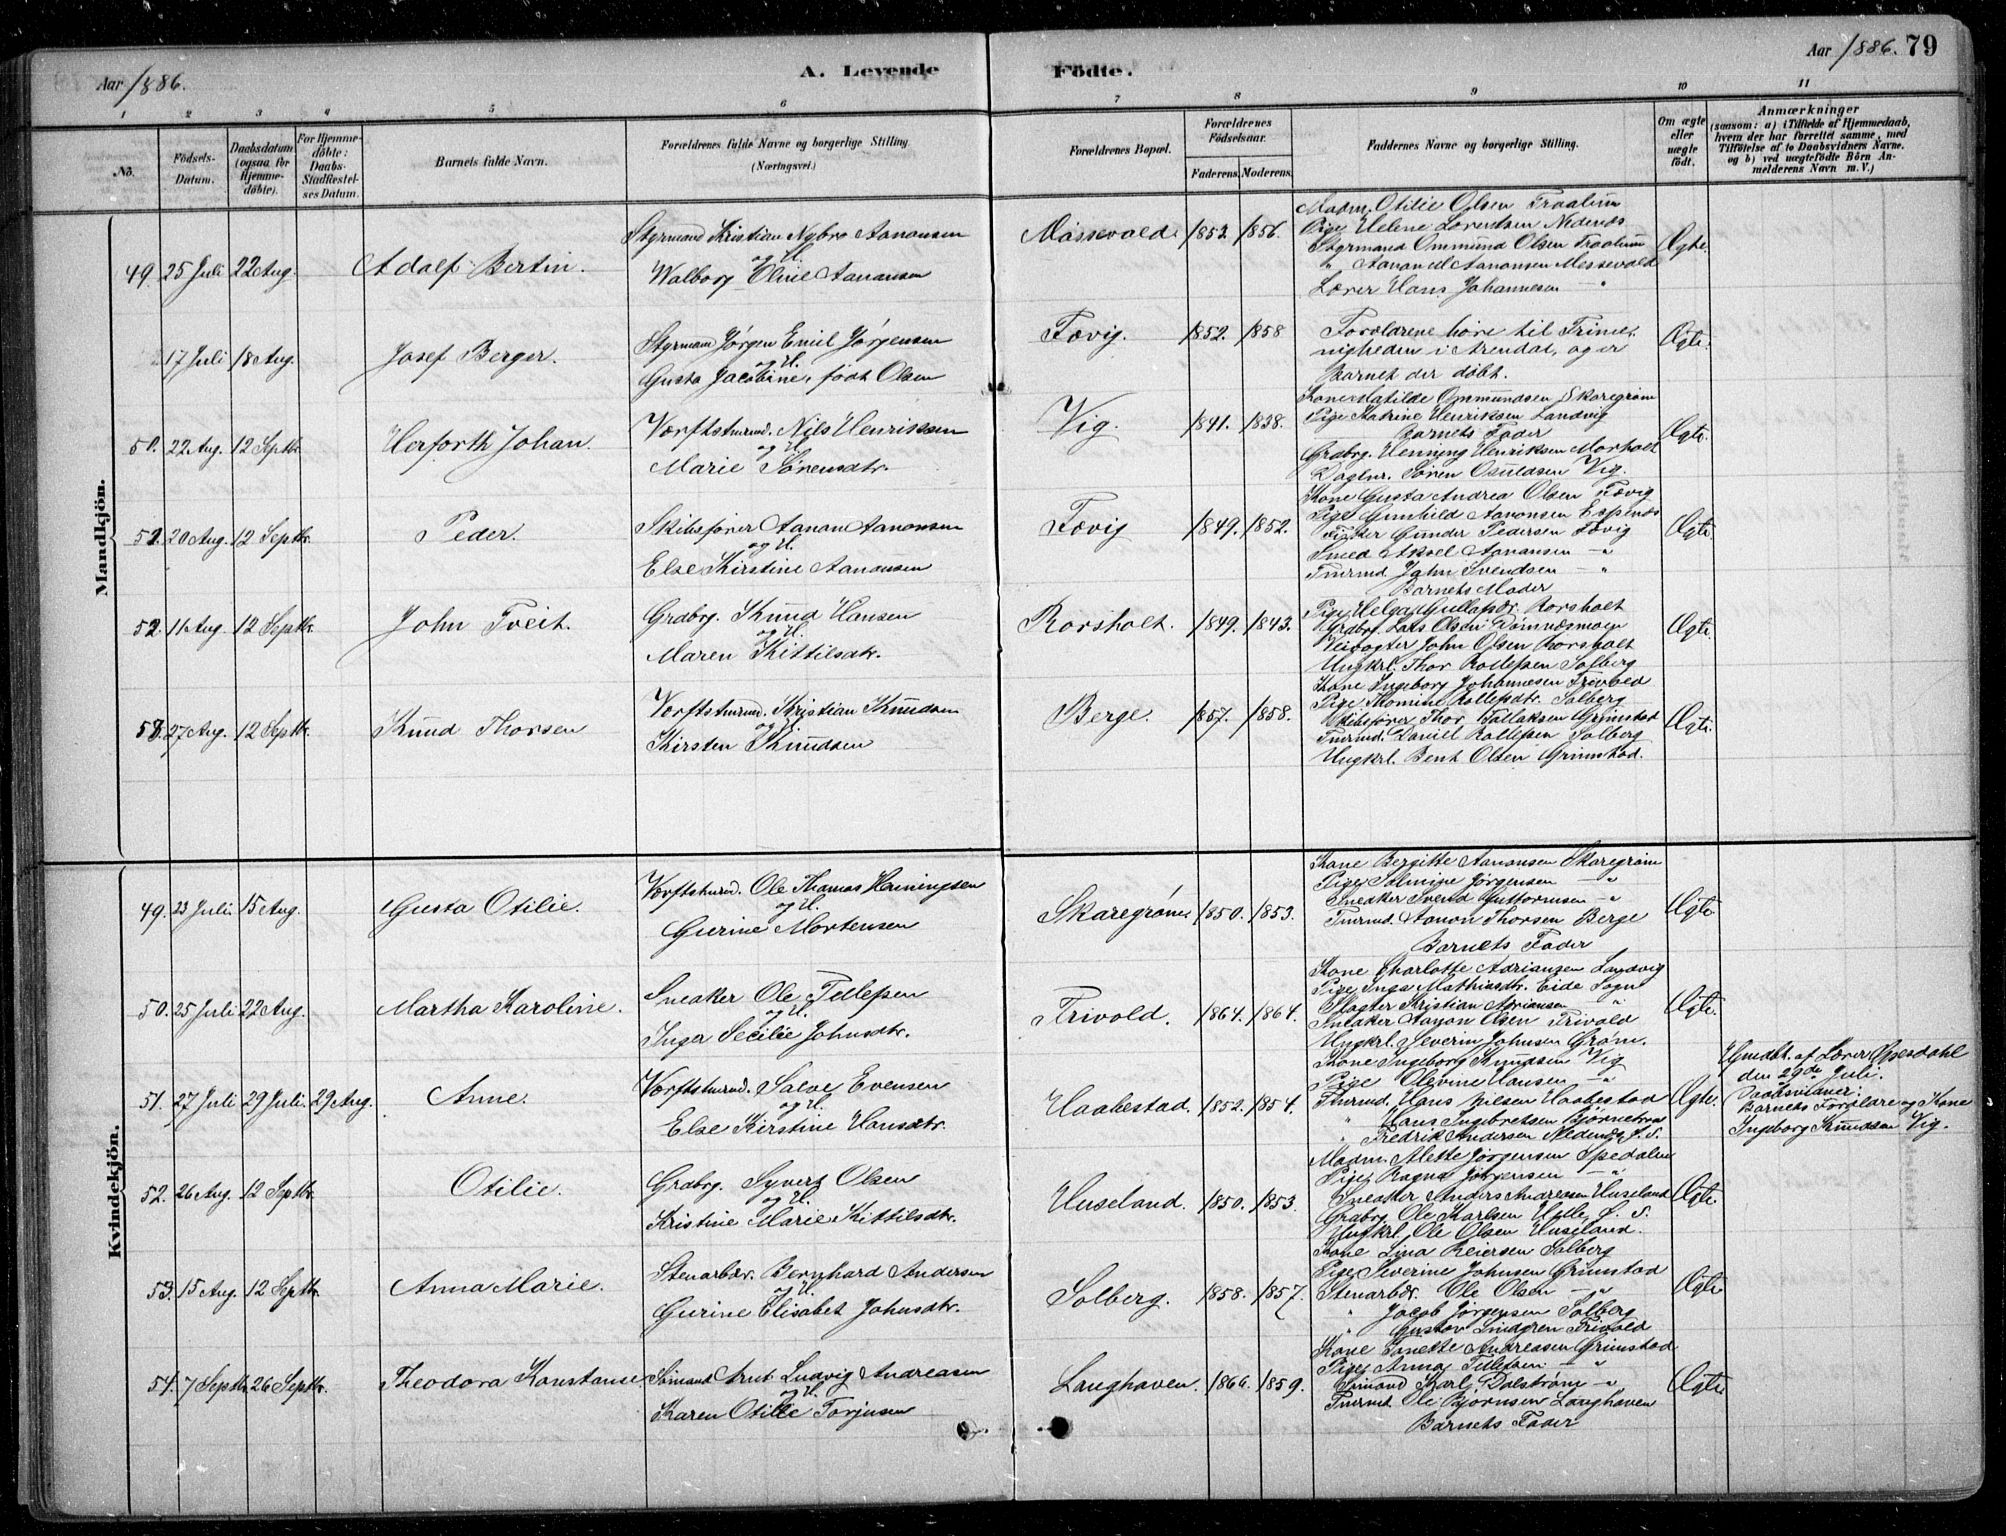 Aar 1886.
A. Levende Födte.
Aar 1886. 79
1 2 3 4 5 6 7 8 9 10 11
No.
Födsels-Datum.
Daabsdatum (ogsaa for Hjemmedöbte).
For Hjemmedöbte: Daabs-Stadfæstelses Datum.
Barnets fulde Navn.
Forældrenes fulde Navne og borgerlige Stilling (Næringsvei.)
Forældrenes Bopæl.
Forældrenes Födselsaar.
Faderens. Moderens.
Faddernes Navne og borgerlige Stilling.
Om ægte eller uægte födt.
Anmærkninger
(saasom: a) i Tilfælde af Hjemmedaab, hvem der har forrettet samme, med Tilföielse af to Daabsvidners Navne. og b) ved uægtefödte Börn Anmelderens Navn m. V.)
Mandkjön.
49. 25 Juli 22 Aug. Adolf Bertin.
Styrmand Kristian Nybro Aanonsen
og H.
Walborg Oline Aanonsen
Messevold 1853. 1856.
Madm. Otilie Olsen
Pige Helene Lorentsen Nedenes
Styrmand Ommund Olsen
" Aanon Aanonsen Messevold
Lærer Hans Johannesen — "
Ægte.
17 Juli 18 Aug. Josef Berger.
Styrmann Jørgen Emil Jørgensen
og H.
Gusta Jacobine, født Olsen
Fævig. 1852. 1858
Forældrene høre til Frime-
nigheden i Arendal, og er
Barnet der døbt.
Ægte.
50. 22 Aug. 12 Septbr. Herforth Johan.
Værftstmrmd. Nils Henriksen
og H.
Marie Sørensdtr.
Vig. 1841. 1838.
Kone Matilde Ommundsen Skaregrøm
Pige Katrine Henriksen Landvig
Barnets Fader
Grdbrg. Henning Henriksen Morholt
Daglnr. Søren Osuldsen Vig.
Ægte.
51. 20 Aug. 12 Septbr. Peder.
Skibsfører Aanon Aanonsen
og H.
Else Kirstine Aanonsen
Fævig 1849. 1852.
Kone Gusta Andrea Olsen Fævig
Pige Gunhild Aanonsen Espenes
Gunder Pedersen Fævig
Smed Aksel Aanonsen — "
Tmrmd. John Svendsen — "
Barnets Moder
Ægte.
52. 11 Aug. 12 Septbr. John Tveit.
Grdbrg. Knud Hansen
og H.
Maren Kittilsdtr.
Rorsholt. 1849. 1843.
Pige Helga Gullaksdr. Rorsholt
Grdbrg. Lars Olsen Dømnesmoen
Veivogter John Olsen Rorsholt
Ungkrl. Thor Rollefsen Solberg
Ægte.
53. 27 Aug. 12 Septbr. Knud Thorsen
Værftstmrmd. Kristian Knudsen
og H.
Kirsten Knudsen
Berge. 1857. 1858.
Kone Ingeborg Johannesen Frivold
Pige Thomine Rollefsdtr. Solberg
Skibsfører Thor Tallaksen Grimstad
Tmrmd. Daniel Rollefsen Solberg
Ungkrl. Bent Olsen Grimstad.
Ægte.
Kvindekjön.
49. 23 Juli 15 Aug. Gusta Otilie.
Værftstmrmd. Ole Thomas Henningsen
og H.
Gurine Mortensen
Skaregrøm 1850. 1853.
Kone Bergitte Aanonsen Skaregrøm
Pige Jørgensen — "
Sneaker Svend Guttormsen — "
Tmrmd. Aanon Thorsen Berge
Barnets Fader
Ægte
50. 25 Juli 22 Aug. Martha Karoline.
Sneaker Ole Tellefsen
og H.
Inger Secilie Johnsdtr.
Frivold. 1864. 1864.
Kone Charlotte Adriansen Landvig
Pige Inga Mathiasdtr. Eide Sogn
Slagter Kristian Adriansen — "
Sneaker Aanon Olsen Frivold
Ungkrl. Severin Johnsen Grøm.
Ægte.
51. 27 Juli 29 Juli. 29 Aug. Anne.
Værftstmrmd. Salve Evensen
og H.
Else Kirstine Hansdtr.
Haabestad. 1852. 1854.
Kone Ingeborg Knudsen Vig
Pige Olevine Hansen — "
Tmrmd. Hans Nilsen Haabestad
" Hans Ingebretsen
" Fredrik Andersen Nedenes
Ægte.
Hmdbt. af Lærer Opesdahl
den 29de Juli.
Daabsvidner:
Barnets Forældre og Kone
Ingeborg Knudsen Vig.
52. 26 Aug. 12 Septbr. Otilie.
Grdbrg. Syvert Olsen
og H.
Kristine Marie Kittilsdtr.
Huseland. 1850. 1853.
Madm. Mette Jørgensen Spedalen
Pige Ragna Jørgensen — "
Sneaker Anders Andreasen Huseland
Grdbrg. Ole Karlsen
Ungkrl. Ole Olsen Huseland.
Ægte.
53. 15 Aug. 12 Septbr. Anna Marie.
Stenarbdr. Bernhard Andersen
og H.
Gurine Elisabet Johnsdtr.
Solberg. 1858. 1857.
Kone Lina Reiersen Solberg
Pige Severine Johnsen Grimstad
Stenarbdr. Ole Olsen — "
" Jacob Jørgensen Solberg
" Gustav Lindgren Frivold
Ægte
54. 7 Septbr. 26 Septbr. Theodora Konstanse
Sømand Arnt Ludvig Andreasen
og H.
Karen Otilie Torjusen
Langhaven. 1866. 1859.
Kone Tanette Andreasen Grimstad
Pige Anna Tellefsen — "
Sømand Karl Dalstrøm — "
Tmrmd. Ole Bjørnsen Langhaven
Barnets Fader
Ægte